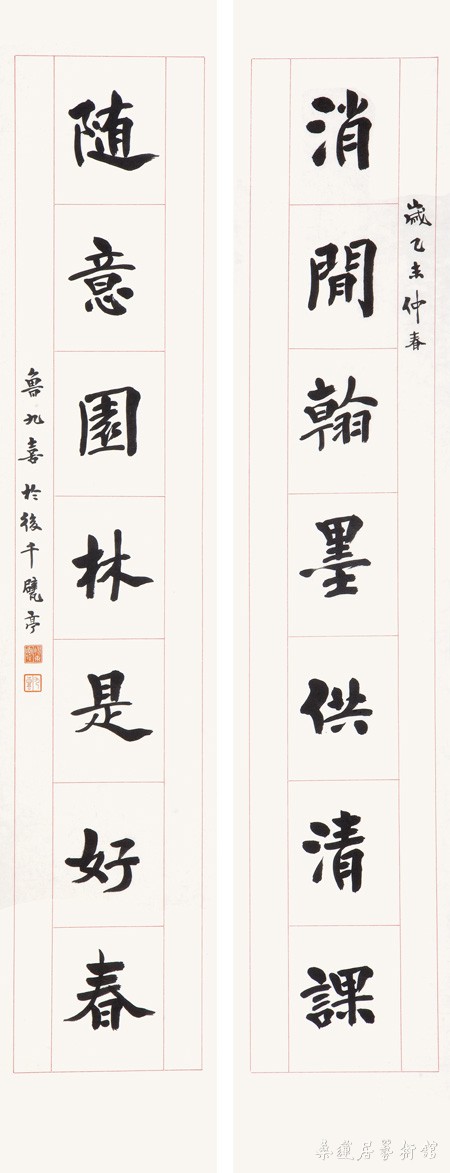 歲乙未仲春
消閒翰墨供清課
随意園林是好春
魯九喜於後千甓亭
藝蓮居藝術館